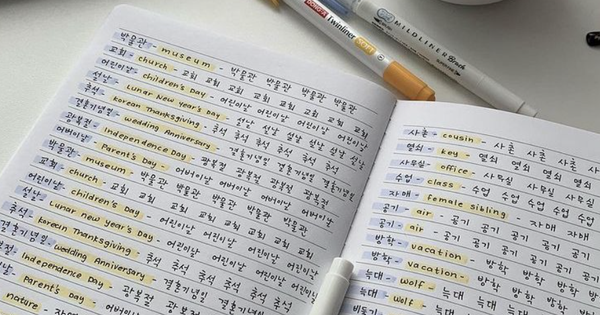 박물관 - museum - 박물관 박물관 박물관 박물관
교회 - church - 교회 교회 교회 교회 교회 교회
어린이날 - children's Day - 어린이날 어린이날 어린이날
설날 - Lunar New year's Day - 설날 설날 설날 설날 설날
추석 - korean Thanksgiving - 추석 추석 추석 추석 추석
결혼기념일 - wedding Anniversary - 결혼기념일 결혼기념일
광복절 - Independence Day - 광복절 광복절 광복절 광복절
어버이날 - Parent's Day - 어버이날 어버이날 어버이날
박물관 - museum - 박물관 박물관 박물관
교회 - church - 교회 교회 교회 교회 교회
어린이날 - children's Day - 어린이날 어린이날 어린이날
설날 - Lunar new year's Day - 설날 설날 설날 설날
추석 - korean Thanksgiving - 추석 추석 추석 추석 추석
결혼기념일 - wedding Anniversary - 결혼기념일 결혼기념일
광복절 - Independence Day - 광복절 광복절
어버이날 - Parent's Day - 어버이날
nature -
사촌 - cousin - 사촌 사촌 사촌
열쇠 - key - 열쇠 열쇠 열쇠 열쇠
사무실 - office - 사무실 사무실 사무실
수업 - class - 수업 수업 수업 수업
자매 - female sibling - 자매 자매
공기 - air - 공기 공기 공기 공기
공기 - air - 공기 공기 공기 공기
방학 - vacation - 방학 방학 방학
방학 - vacation - 방학 방학 방학
늑대 - wolf - 늑대 늑대 늑대
늑대 - wolf - 늑대 늑대
Twinliner
MILDLINER Brush